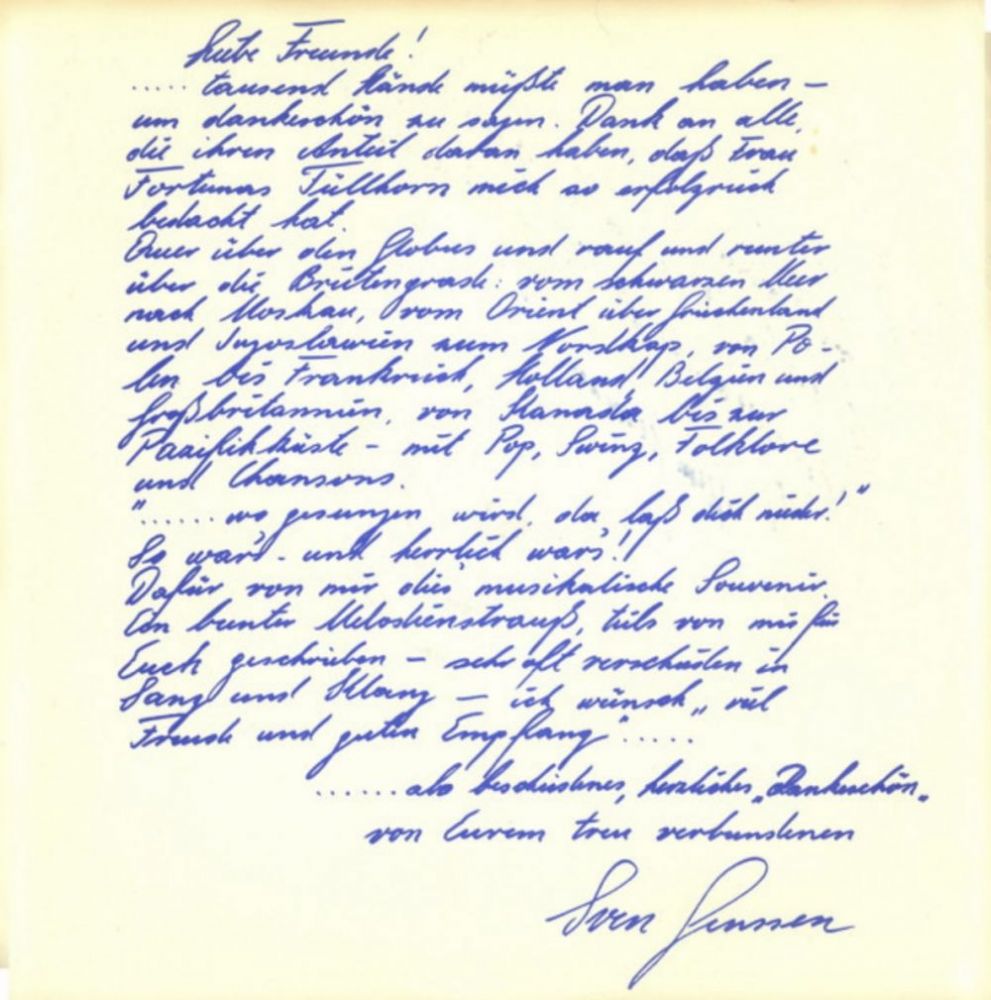 Liebe Freunde!
..... tausend Hände müßte man haben –
um dankeschön zu sagen. Dank an alle,
die ihren Anteil daran haben, daß Frau
Fortunas Füllhorn mich so erfolgreich
bedacht hat.
Quer über den Globus und rauf und runter
über die Breitengrade: vom schwarzen Meer
nach Moskau, vom Orient über Griechenland
und Jugoslawien zum Nordkap, von Po-
len bis Frankreich, Holland, Belgien und
Großbritannien, von Kanada bis zur
Pazifikküste – mit Pop, Swing, Folklore
und Chansons.
"...... wo gesungen wird, da laß dich nieder!"
So war's - und herrlich war's!
Dafür von mir dies musikalische Souvenir.
Ein bunter Melodienstrauß, teils von mir für
Euch geschrieben – sehr oft verschieden in
Sang und Klang – ich wünsch „viel
Freude und guten Empfang" .....
...... als bescheidenes, herzliches „Dankeschön„
von Eurem treu verbundenen
Sven Jenssen